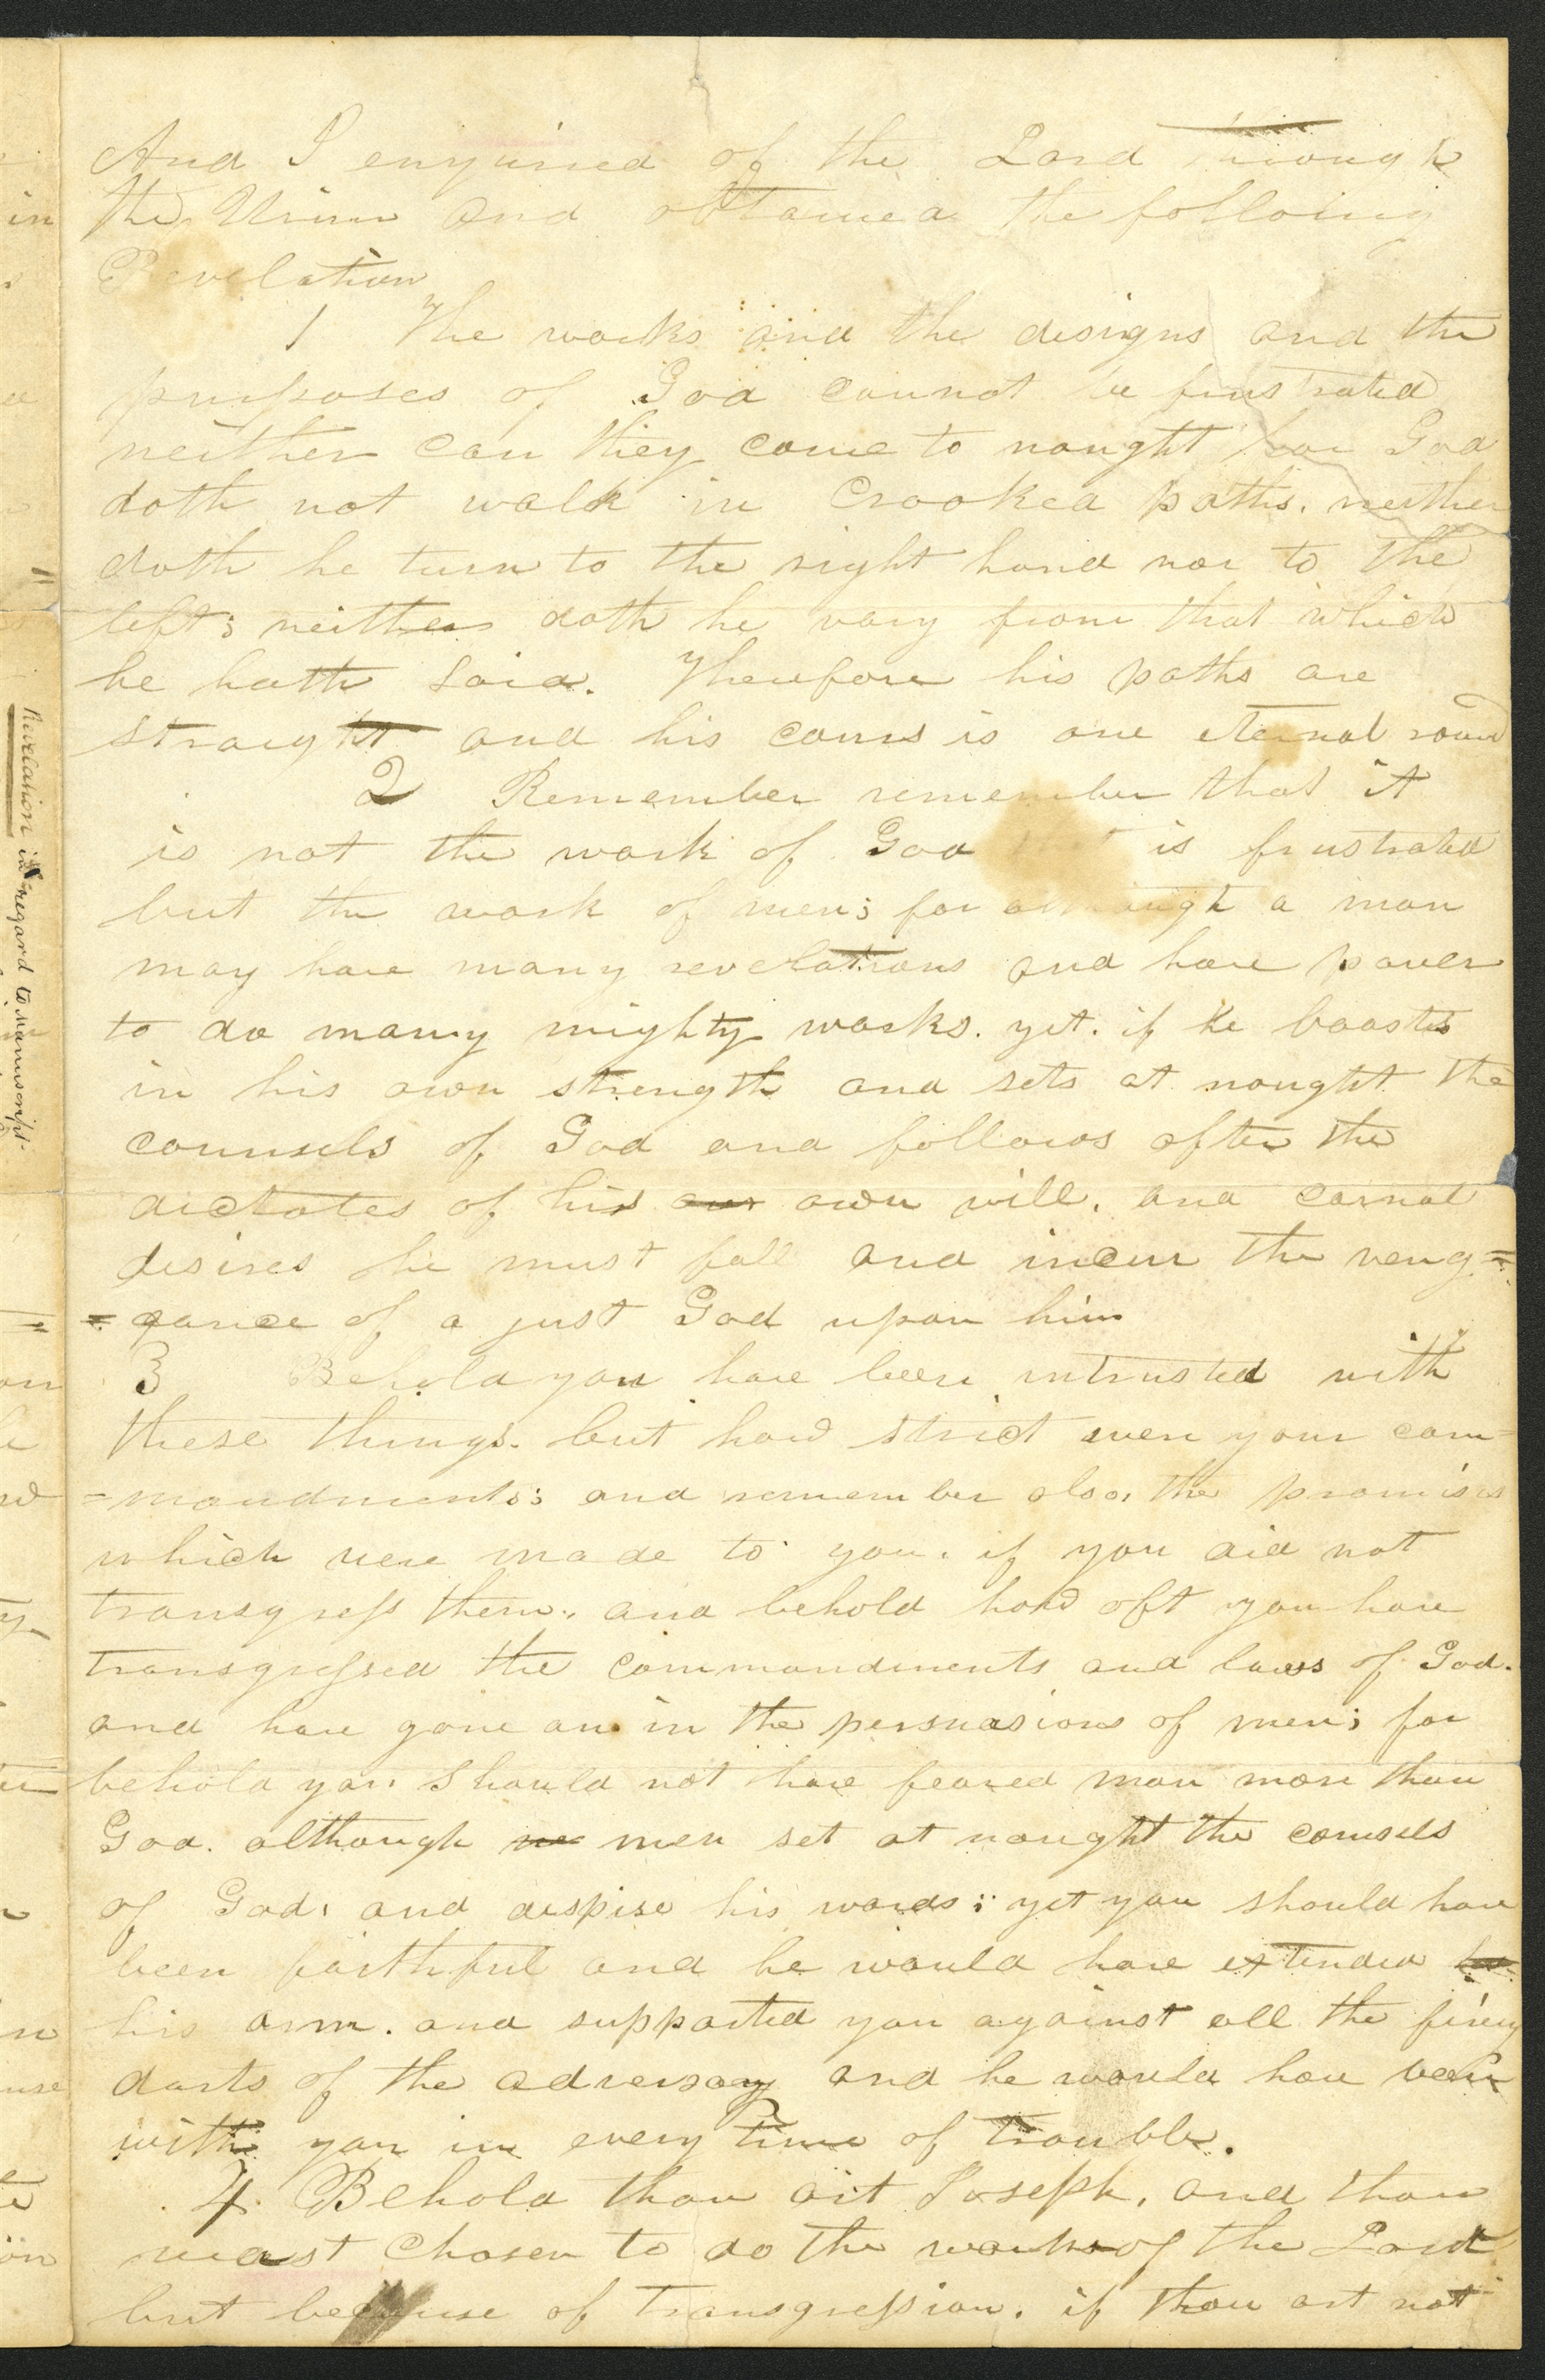 And I enquired of the Lord through
the Urim and obtained the following
Revelation
1 The works and the designs and the
purposes of God cannot be frustrated
neither can they come to nought for God
doth not walk in Crooked paths. neither
doth he turn to the right hand nor to the
left; neither doth he vary from that which
he hath said. Therefore his paths are
straight and his cours is one eternal round
2 Remember remember that it
is not the work of God is frustrated
but the work of men; for although a man
may have many revelations and have power
to do many mighty works. yet. if he boasts
in his own strength and sets at nought the
counsels of God and follows after the
dictates of his own will. and carnal
desires he must fall and incur the veng=
=eance of a just God upon him
3 Behold you have been intrusted with
these things. but how strict were your com=
=mandments; and remember also, the promises
which were made to you. if you did not
transgress them, and behold how oft you have
transgressed the commandments and laws of God.
and have gone on in the persuasions of men; for
behold you should not have feared man more than
God. although men set at nought the counsels
of God, and despise his words; yet you should have
been faithful and he would have extended
his arm. and supported you against all the firery
darts of the adversary and he would have been
with you in every time of trouble.
4 Behold thou art Joseph, and thou
wast chosen to do the work of the Lord
but because of transgression. if thou art not
Revelation in regard to Manuscript